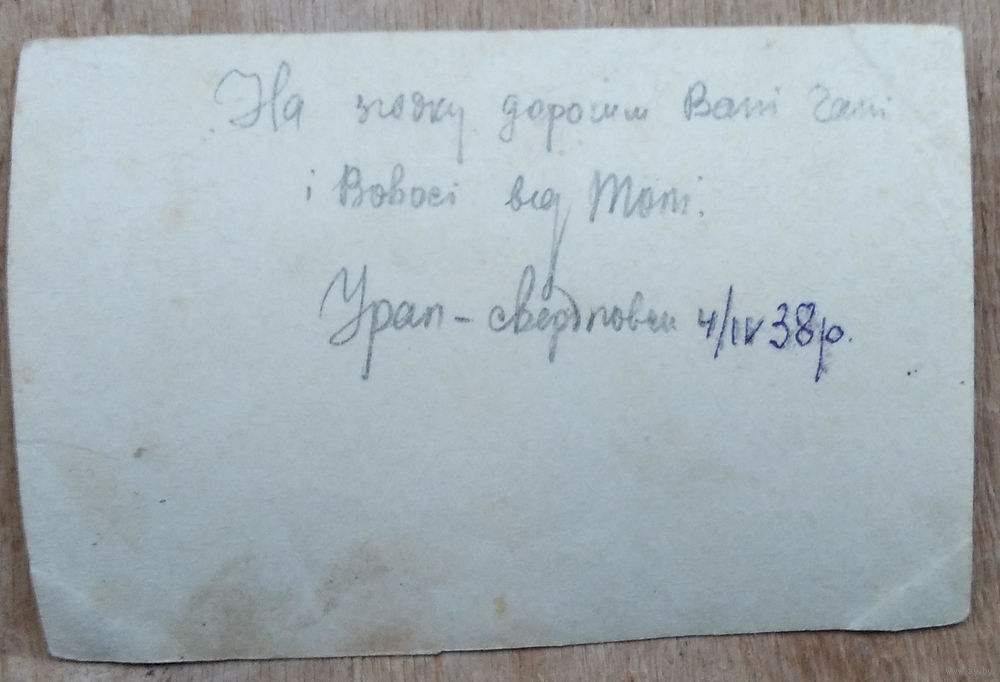 На згадку дорогим Вані Гані
і Вовосі від Толі.
Урал - свердловськ 4/IV 38 р.
www.ay.by